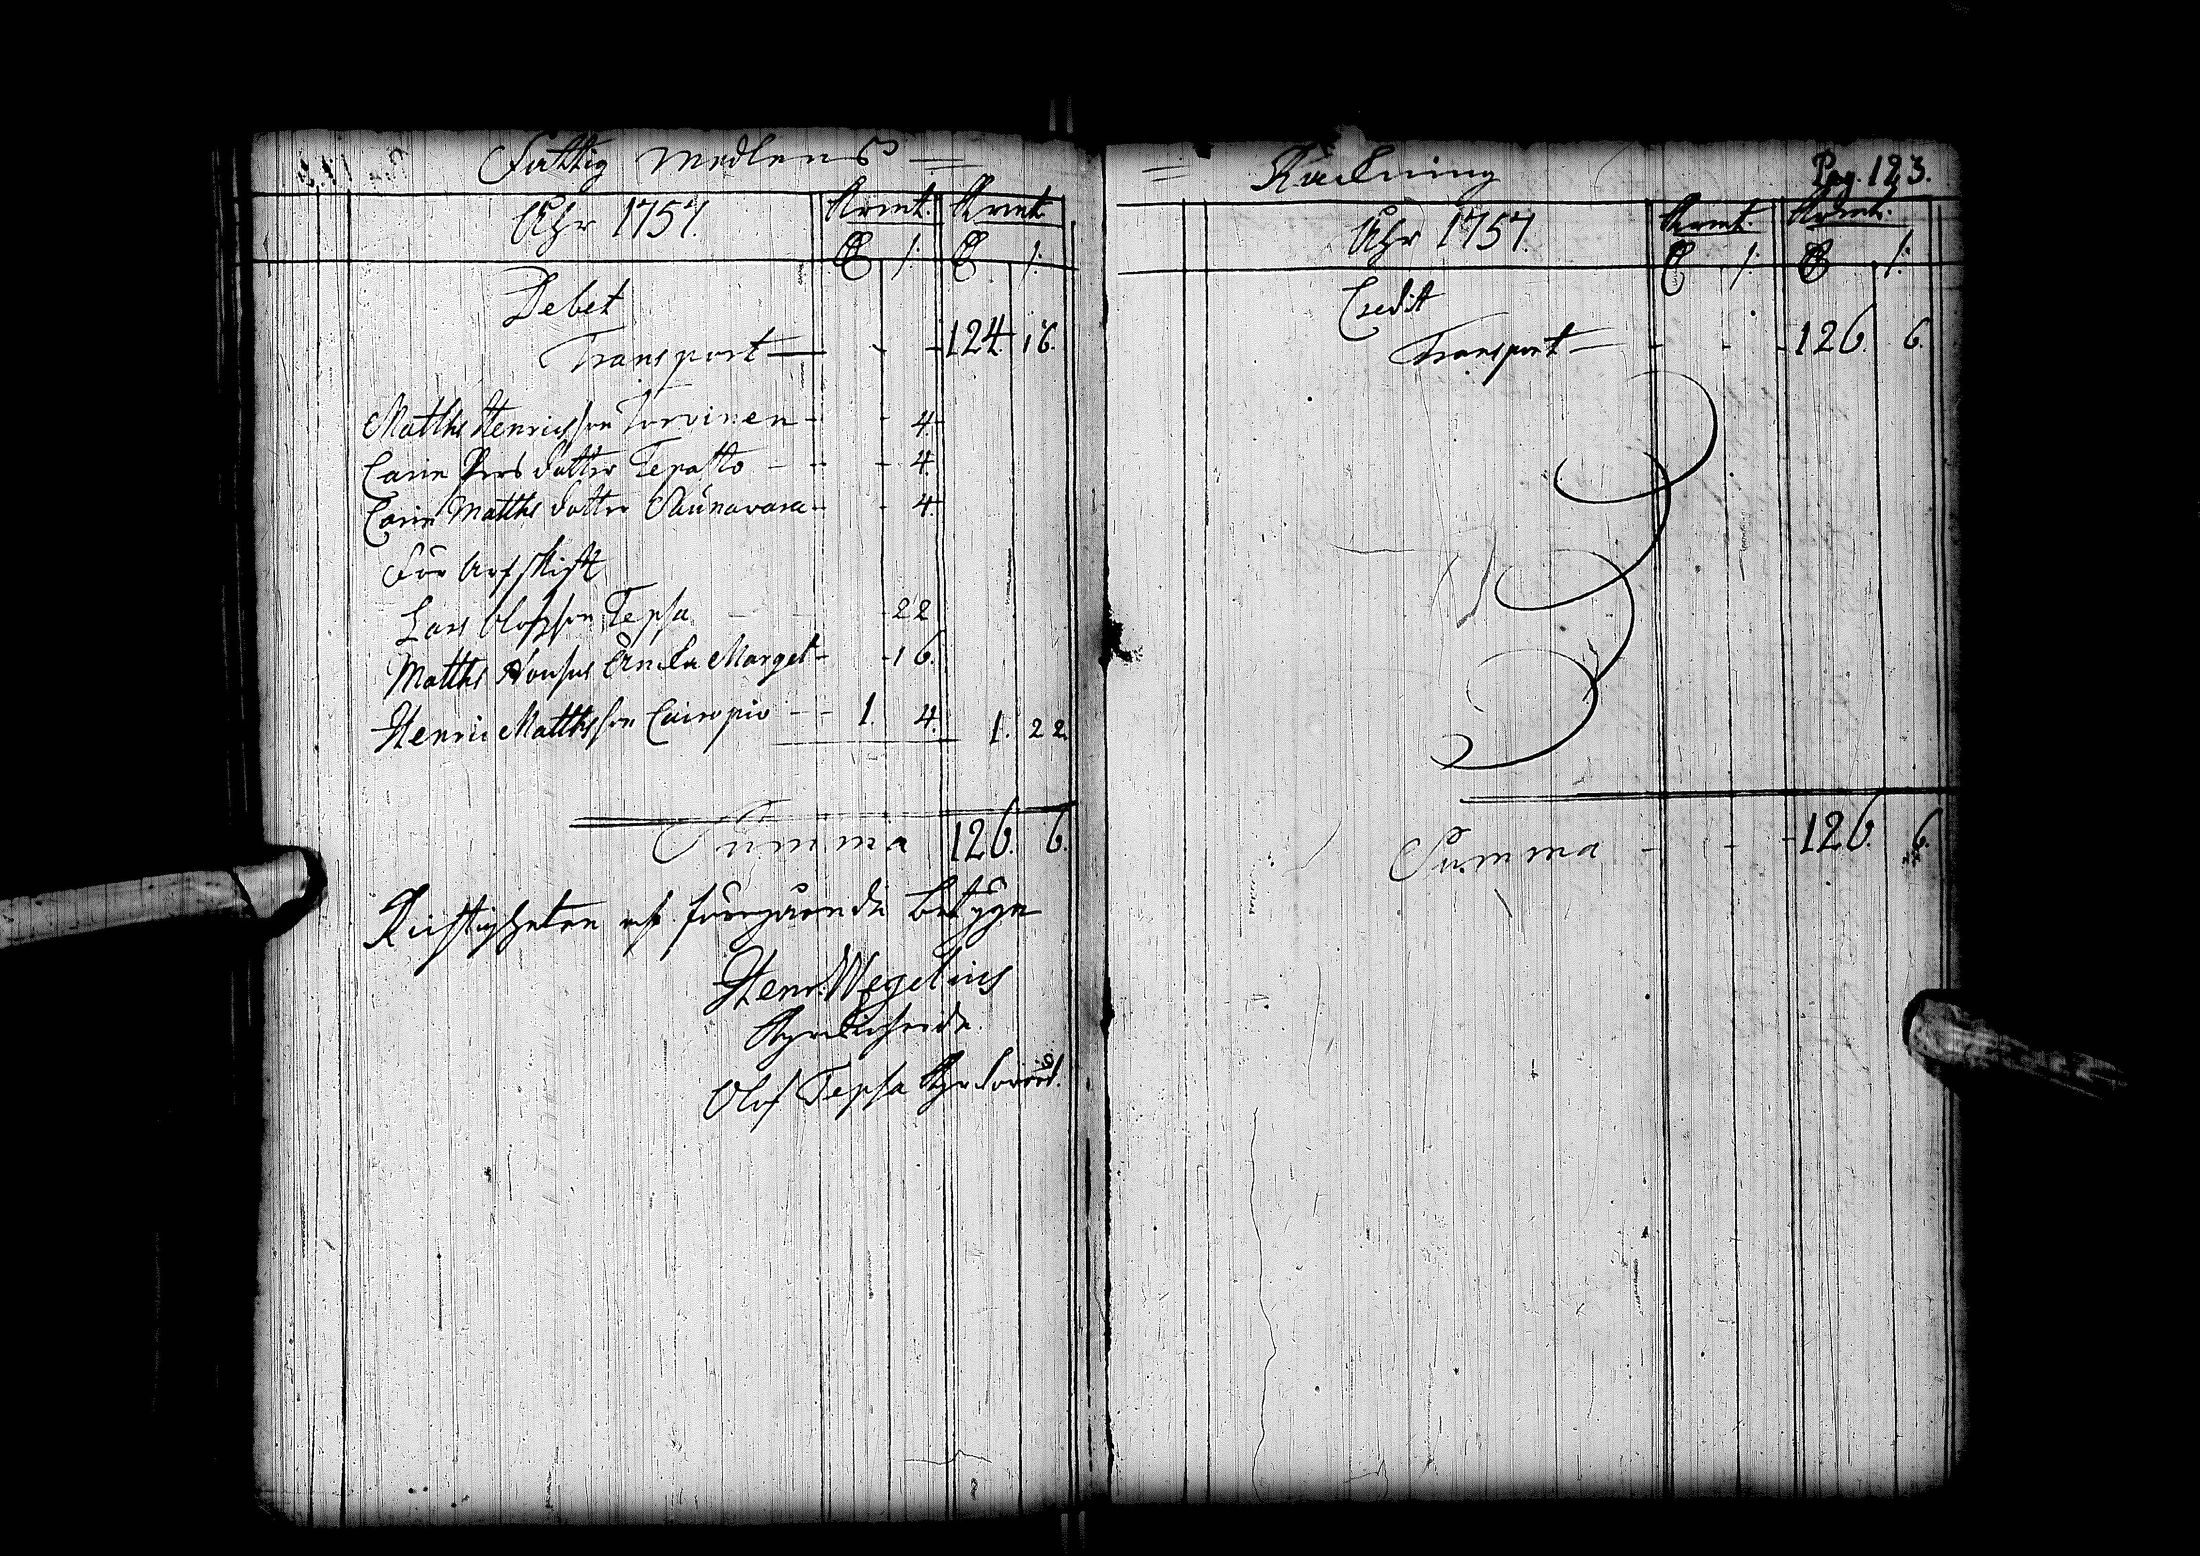 Fattig medlens =
Åhr 1757. Kvmt. Kvmt.
Debet
Transport — 124. 16.
Matths Henricsson Torvinen - - 4.
Carin Pers dotter Tepasto - - - 4.
Carin Matths dotter Saunavara - - 4.
För Arfskift
Lars Olofsson Tepsa - - 22
Matths Enka Marget - - 16.
Henric Matthsson Cairopio - - 1. 4. 1. 22
Summa 126. 6.
Richtigheten af föregående betyga
Henr. Wegelius
Kyrckioherde.
Olof Tepsa
= Räckning Pag. 123.
Åhr 1757. Kvmt. Kvmt.
Credit
Transport — 126. 6.
Summa - - - 126. 6.